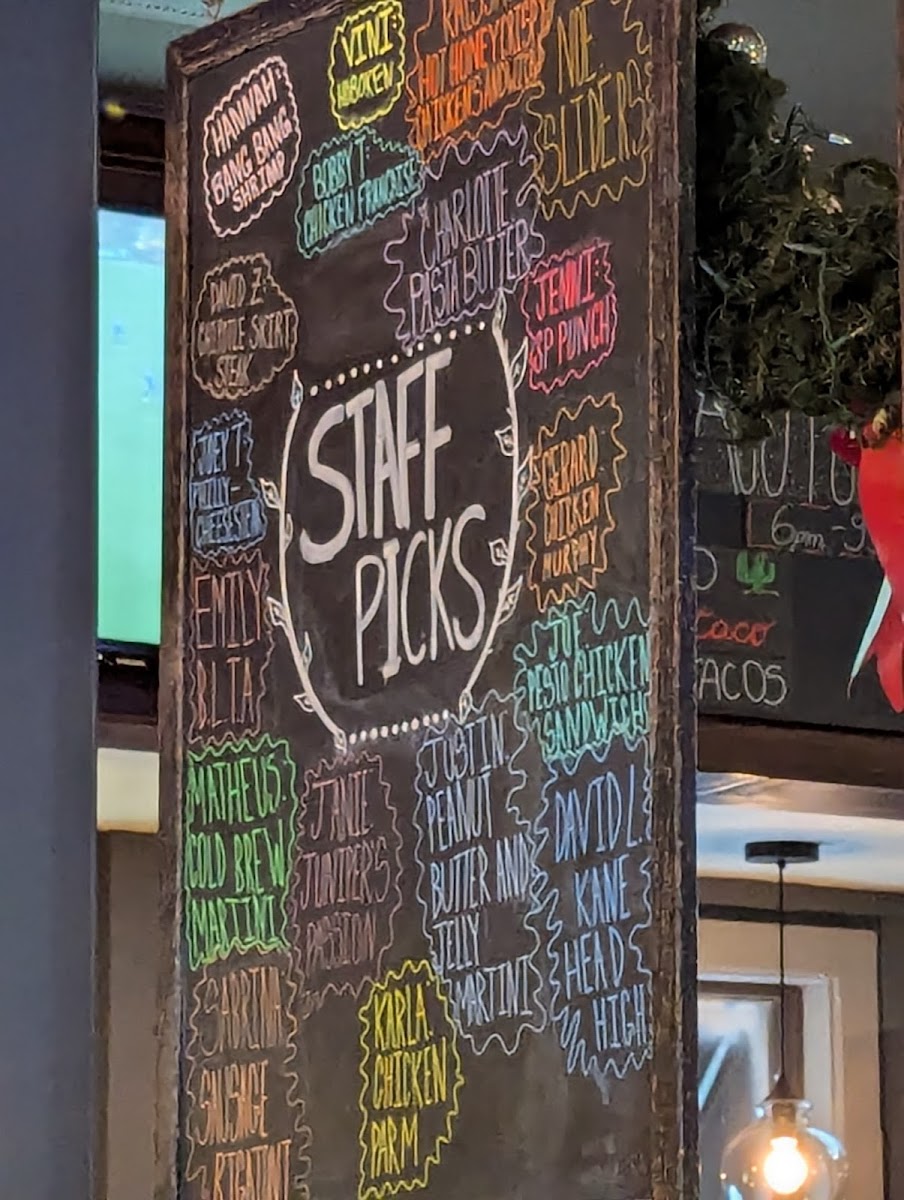 HANNAH:
BANG BANG
SHRIMP
VINI:
HOBOKEN
HOT HONEY CRISPY
CHICKEN SANDWICH
NOE:
SLIDERS
BOBBY T:
CHICKEN FRANCAISE
CHARLOTTE:
PASTA BUTTER
DAVID Z:
CHIPOTLE SKIRT
STEAK
JENNI:
SP PUNCH
STAFF
PICKS
JOEY T
PHILLY-
CHEESESTEAK
GERARD:
CHICKEN
MURPHY
EMILY
BLTA
JOE
PESTO CHICKEN
SANDWISH
MATHEUS:
COLD BREW
MARTINI
JANIE
JUNIPER'S
PASSION
JUSTIN:
PEANUT
BUTTER AND
JELLY
MARTINI
DAVID L:
KANE
HEAD
HIGH
SABRINA
SAUSAGE
RIGATONI
KARLA:
CHICKEN
PARM
6pm-9
taco
TACOS